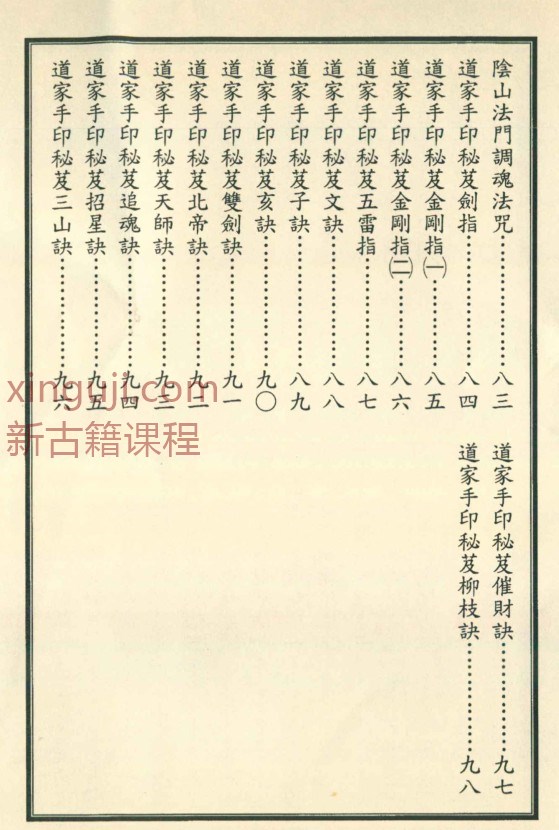 陰山法門調魂法咒……………………八三
道家手印秘芨劍指……………………八四
道家手印秘芨金剛指㈠……………………八五
道家手印秘芨金剛指㈡……………………八六
道家手印秘芨五雷指……………………八七
道家手印秘芨文訣……………………八八
道家手印秘芨子訣……………………八九
道家手印秘芨亥訣……………………九〇
道家手印秘芨雙劍訣……………………九一
道家手印秘芨北帝訣……………………九二
道家手印秘芨天師訣……………………九三
道家手印秘芨追魂訣……………………九四
道家手印秘芨招星訣……………………九五
道家手印秘芨三山訣……………………九六
道家手印秘芨催財訣……………………九七
道家手印秘芨柳枝訣……………………九八
xinguji.com
新古籍课程